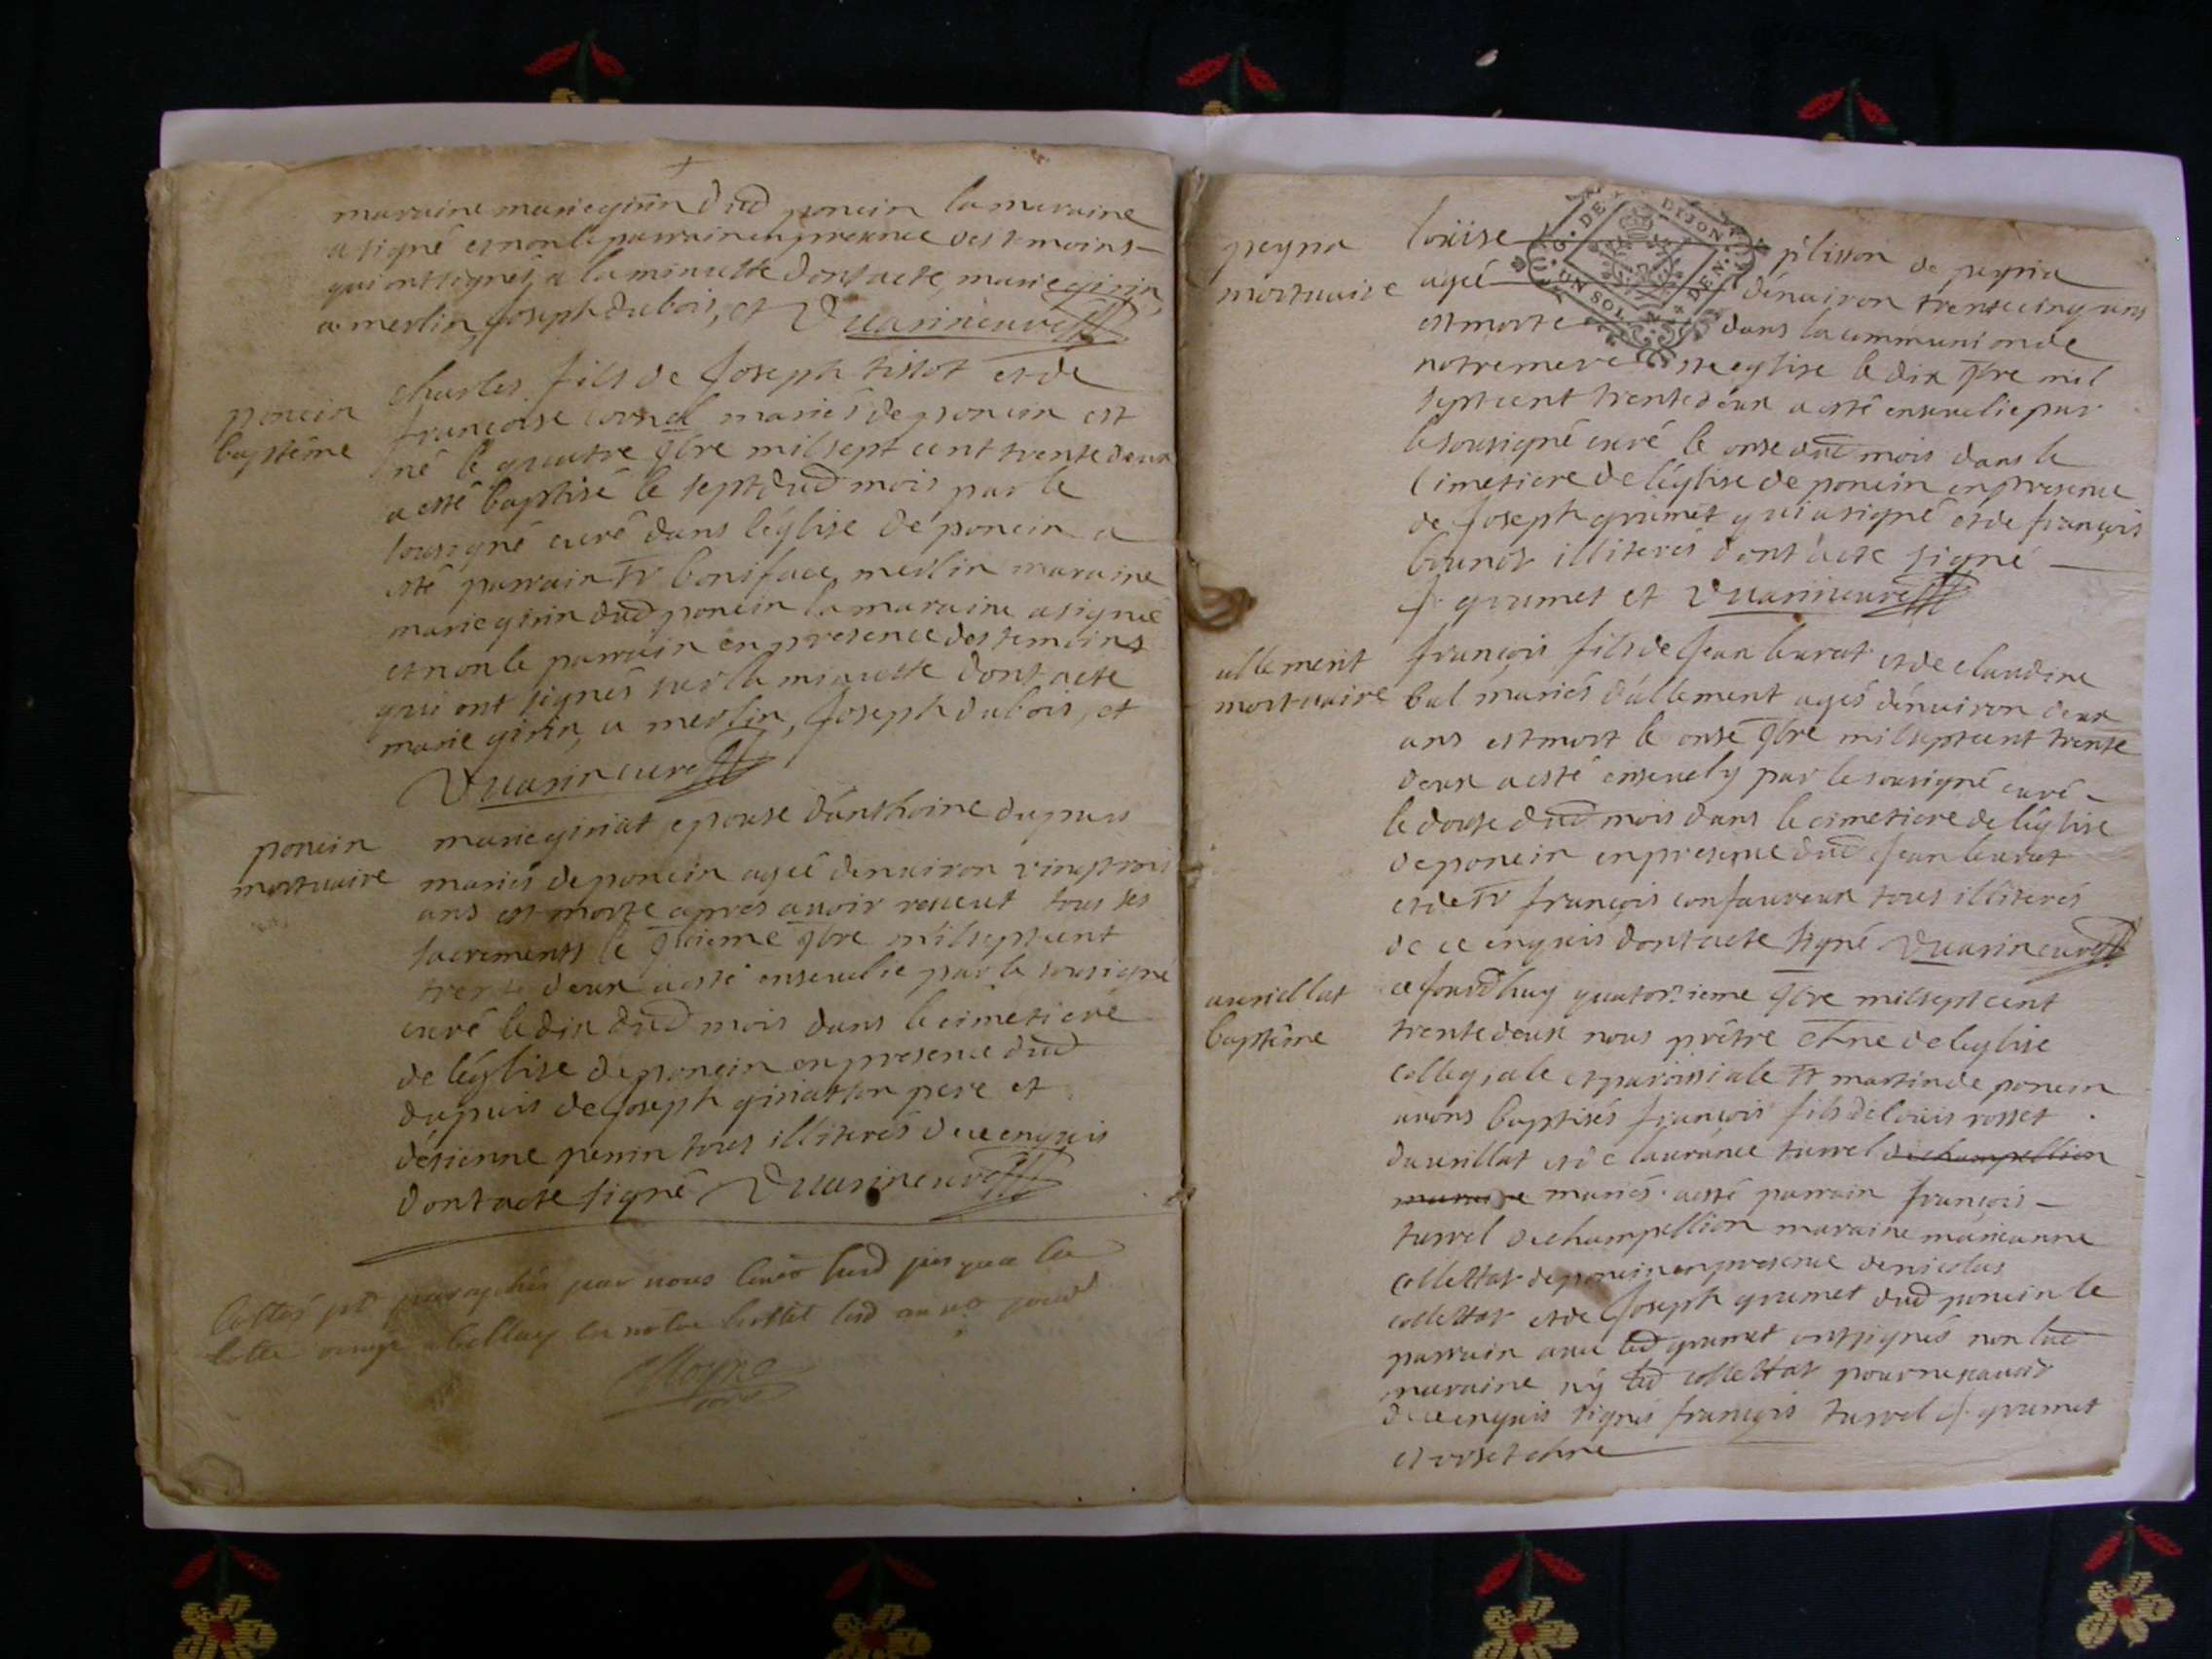 maraine marie girin dud poncin la maraine
a signé et non le parrain en presence des temoins
qui ont signés a la minutte dont acte, marie girin,
a merlin, Joseph dubois, et Vuarin curé
poncin
baptême
charles fils de Joseph tissot et de
francoise cornel mariés de poncin est
né le quatre 9bre mil sept cent trente deux
a esté baptisé le sept dud mois par le
sousigné curé dans l'église de poncin a
esté parrain sr boniface merlin maraine
marie girin dud poncin la maraine a signé
et non le parrain en presence des temoins
qui ont signés sur la minutte dont acte
marie girin, a merlin, Joseph dubois, et
Vuarin curé
poncin
mortuaire
marie giriat epouse d'anthoine dupuis
mariés de poncin ageé d'enuiron vingt trois
ans est morte apres auoir receut tous ses
sacrements le 9bre mil sept cent
trente deux a esté enseuelie par le sousigné
curé le dix dud mois dans le cimetiere
de l'église de poncin en presence dud
dupuis de Joseph giriat son pere et
d'etienne perrin tous illiterés de ce enquis
dont acte signé Vuarin curé
par nous jusqua la
peyria
mortuaire
loüise pélisson de peyria
ageé d'enuiron trente cinq ans
est morte dans la communion de
notre mere ste eglise le dix 9bre mil
sept cent trente deux a esté enseuelie par
le sousigné curé le onse dud mois dans le
cimetiere de l'église de poncin en presence
de Joseph grumet qui a signé et de françois
illiterés dont acte signé
J. grumet et Vuarin curé
G. DE DIJON
UN SOL DEN.
allement
mortuaire
françois fils de Jean barat et de claudine
bal mariés d'allement agés d'enuiron deux
ans est mort le onse 9bre mil sept cent trente
deux a esté enseuely par le sousigné curé
le douse dud mois dans le cimetiere de l'église
de poncin en presence dud Jean barat
et de sr françois confaureux tous illiterés
de ce enquis dont acte signé Vuarin curé
auriellat
baptême
ce Jourd'huy quatorzieme 9bre mil sept cent
trente deux nous prêtre chne de l'eglise
collegiale et paroissiale st martin de poncin
auons baptisés françois fils de louis rosset
et de laurance turrel de champellion
maraine mariés a esté parrain françois
turrel de champellion maraine marieanne
collettar de poncin en presence de nicolas
collettar et de Joseph grumet dud poncin le
parrain auec led grumet ont signés non lad
maraine ny led collettar pour ne scauoir
de ce enquis signés françois turrel J. grumet
et chne